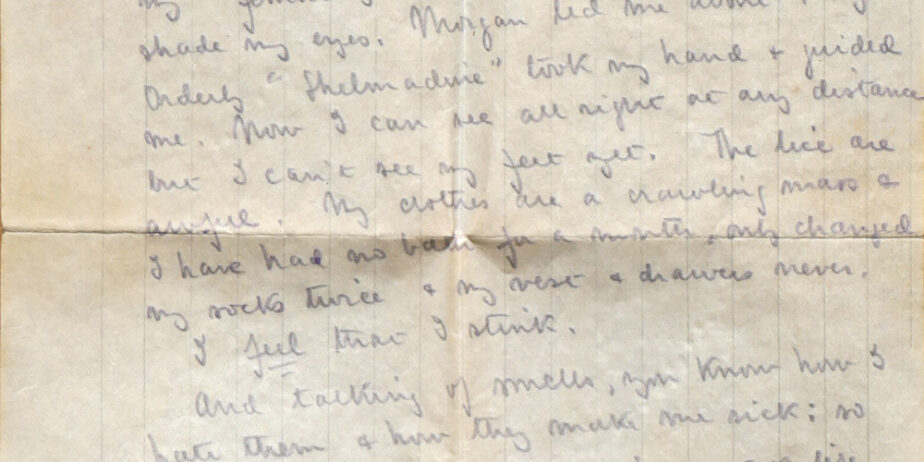 shade my eyes. Morgan led me
Orderly "Shelmadine" took my hand & guided
me. Now I can see all right at any distance
but I can't see my feet yet. The lice are
awful. My clothes are a crawling mass &
I have had no bath for a month, only changed
my socks twice & my vest & drawers never.
I feel that I stink.
And talking of smells, you know how I
hate them & how they make me sick: so